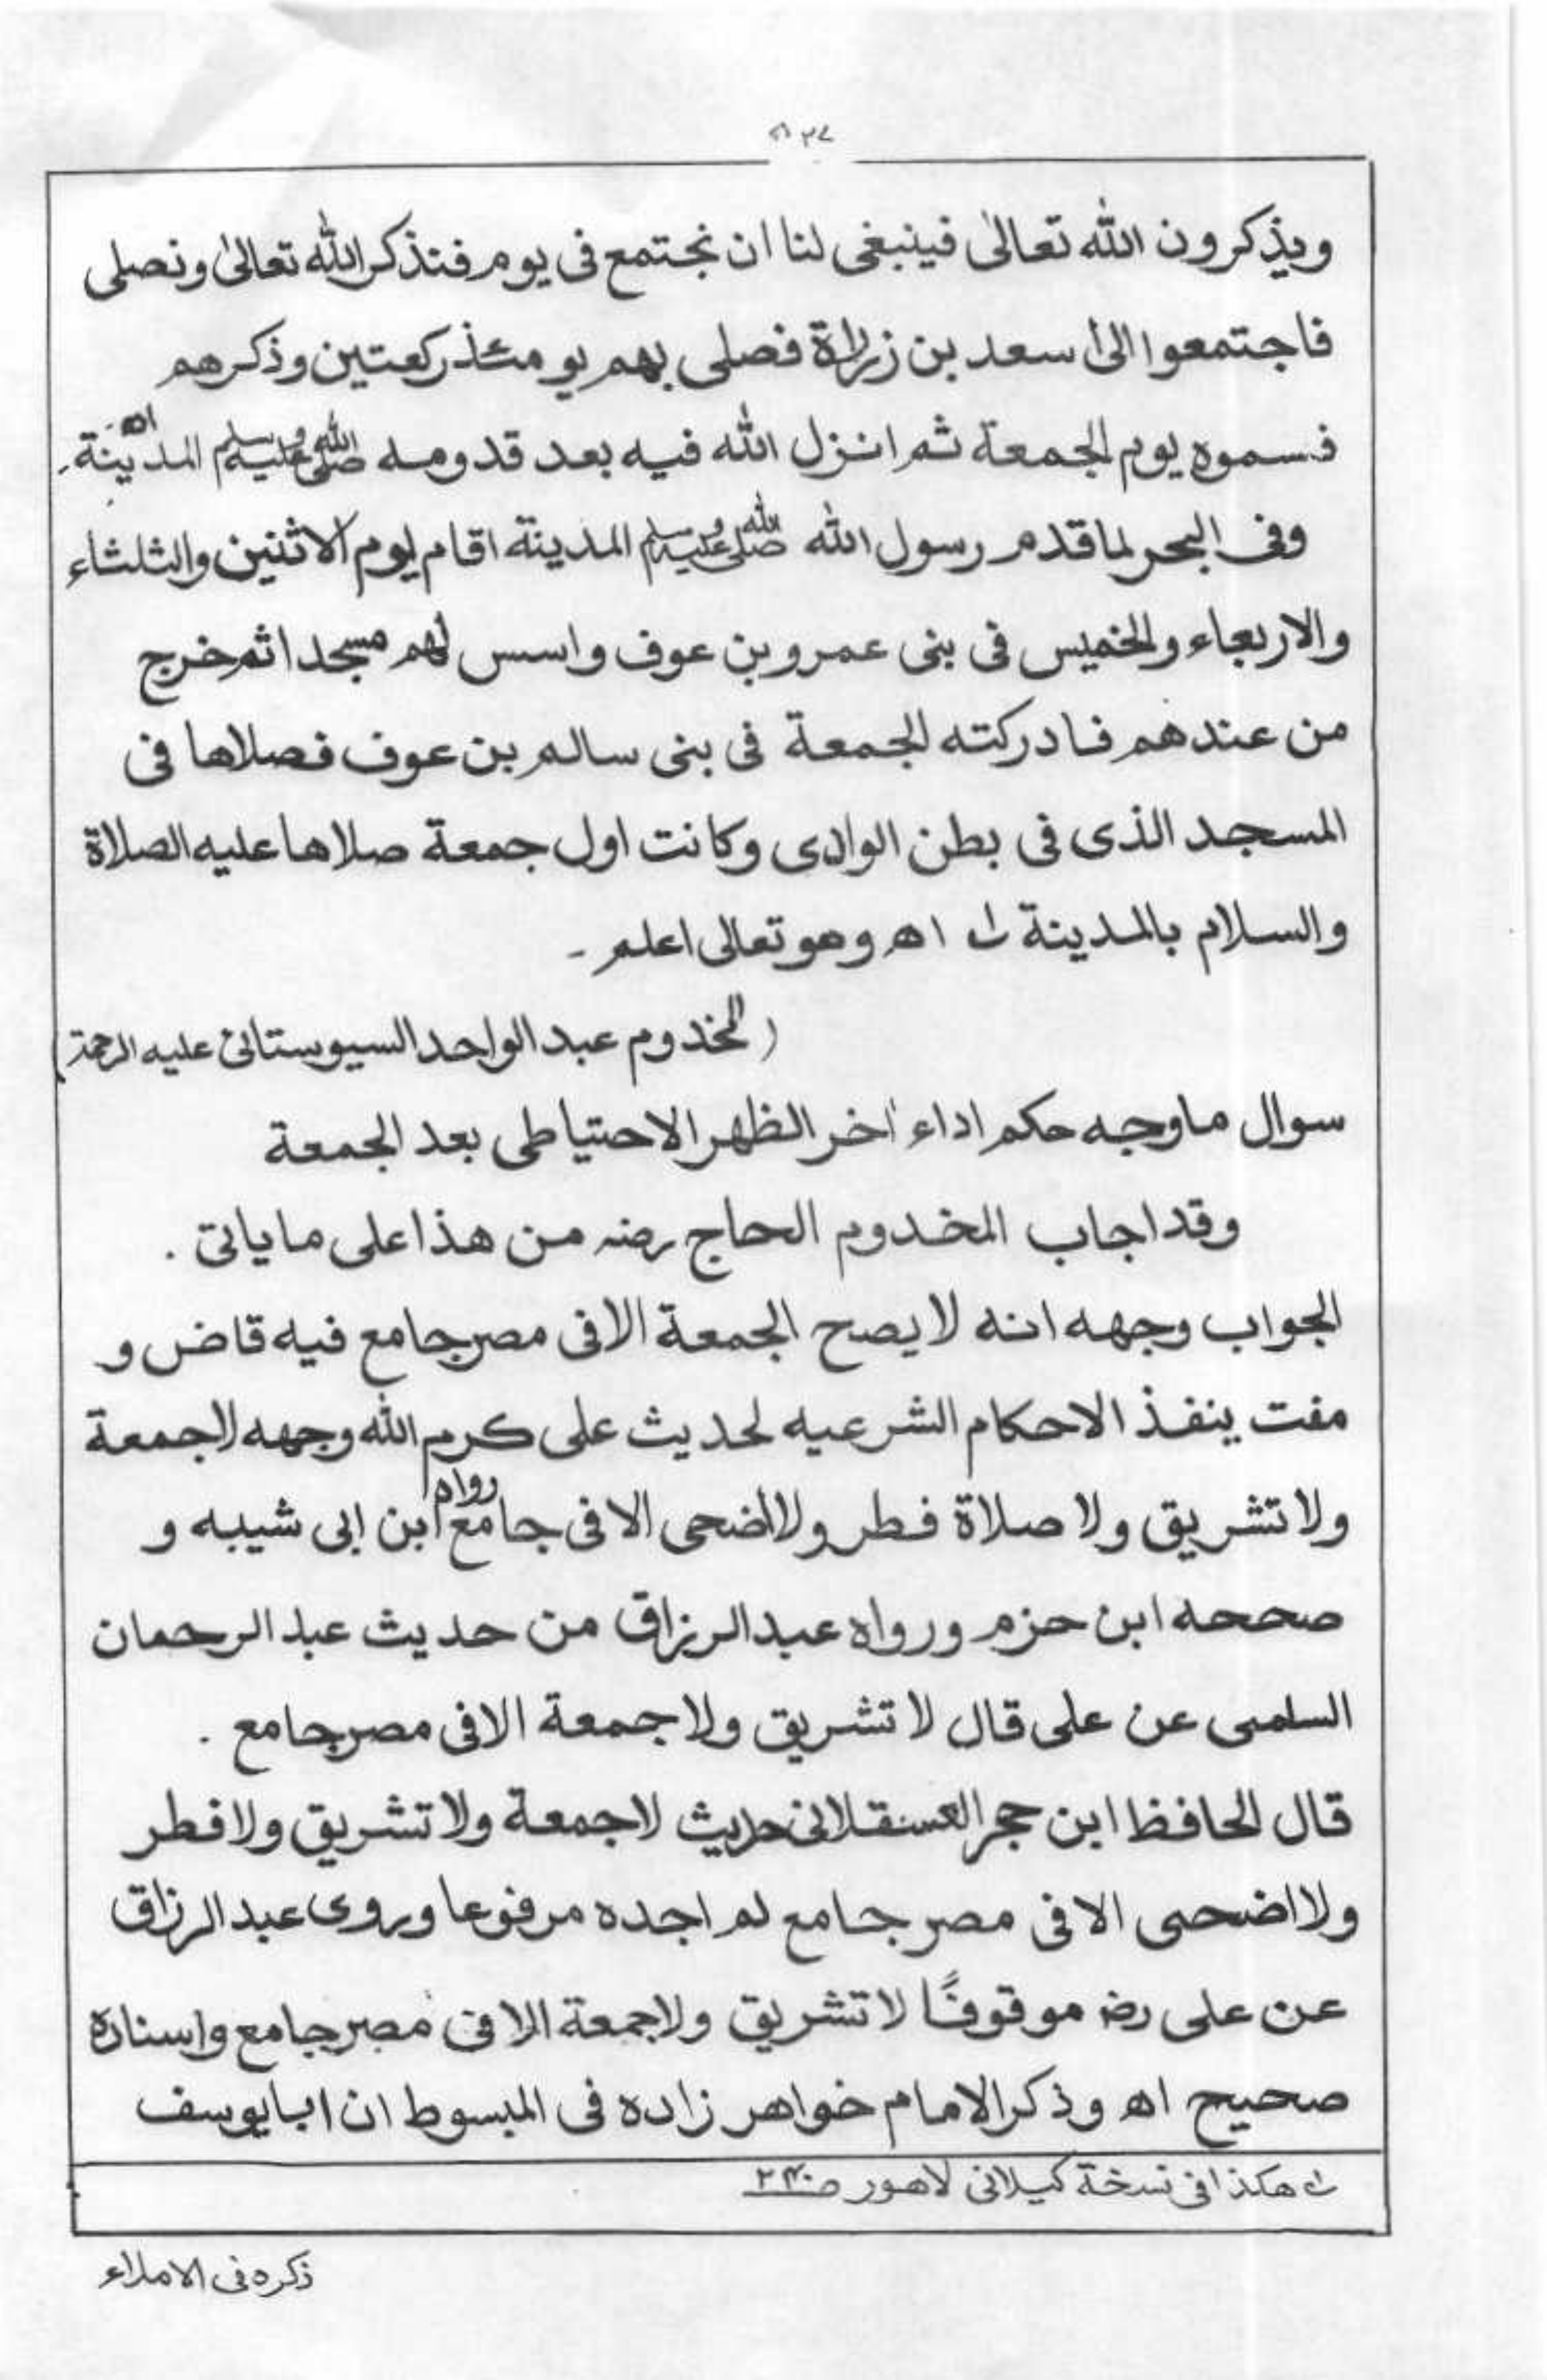 ويذكرون الله تعالىٰ فينبغى لنا ان نجتمع فى يوم فنذكر الله تعالىٰ ونصلى
فاجتمعوا الىٰ سعد بن زرارة فصلى بهم يومئذ ركعتين وذكرهم
فسموه يوم الجمعة ثم انزل الله فيه بعد قدومه صلى الله عليه وسلم المدينة اھ۔
وفى البحر لما قدم رسول الله صلى الله عليه وسلم المدينة اقام يوم الاثنين والثلثاء
والاربعاء والخميس فى بنى عمرو بن عوف واسس لهم مسجدا ثم خرج
من عندهم فادركته الجمعة فى بنى سالم بن عوف فصلاها فى
المسجد الذى فى بطن الوادى وكانت اول جمعة صلاها عليه الصلاة
والسلام بالمدينة اھ وهو تعالى اعلم ۔
(المخدوم عبد الواحد السيوستانى عليه الرحمة)
سوال ما وجه حكم اداء أخر الظهر الاحتياطى بعد الجمعة
وقد اجاب المخدوم الحاج رضہ من هذا على ما ياتى .
الجواب وجهه انه لا يصح الجمعة الا فى مصر جامع فيه قاض و
مفت ينفذ الاحكام الشرعيه لحديث على كرم الله وجهه لاجمعة
ولا تشريق ولا صلاة فطر ولا اضحى الا فى جامع رواه ابن ابى شيبه و
صححه ابن حزم ورواه عبد الرزاق من حديث عبد الرحمان
السلمى عن على قال لا تشريق ولا جمعة الا فى مصر جامع .
قال الحافظ ابن حجر العسقلانى حديث لا جمعة ولا تشريق ولا فطر
ولا اضحى الا فى مصر جامع لم اجده مرفوعا وروى عبد الرزاق
عن على رضہ موقوفًا لا تشريق ولا جمعة الا فى مصر جامع واسناده
صحيح اھ وذكر الامام خواهر زاده فى المبسوط ان ابا يوسف
هكذا فى نسخة كيلانى لاهور
ذكره فى الاملاء